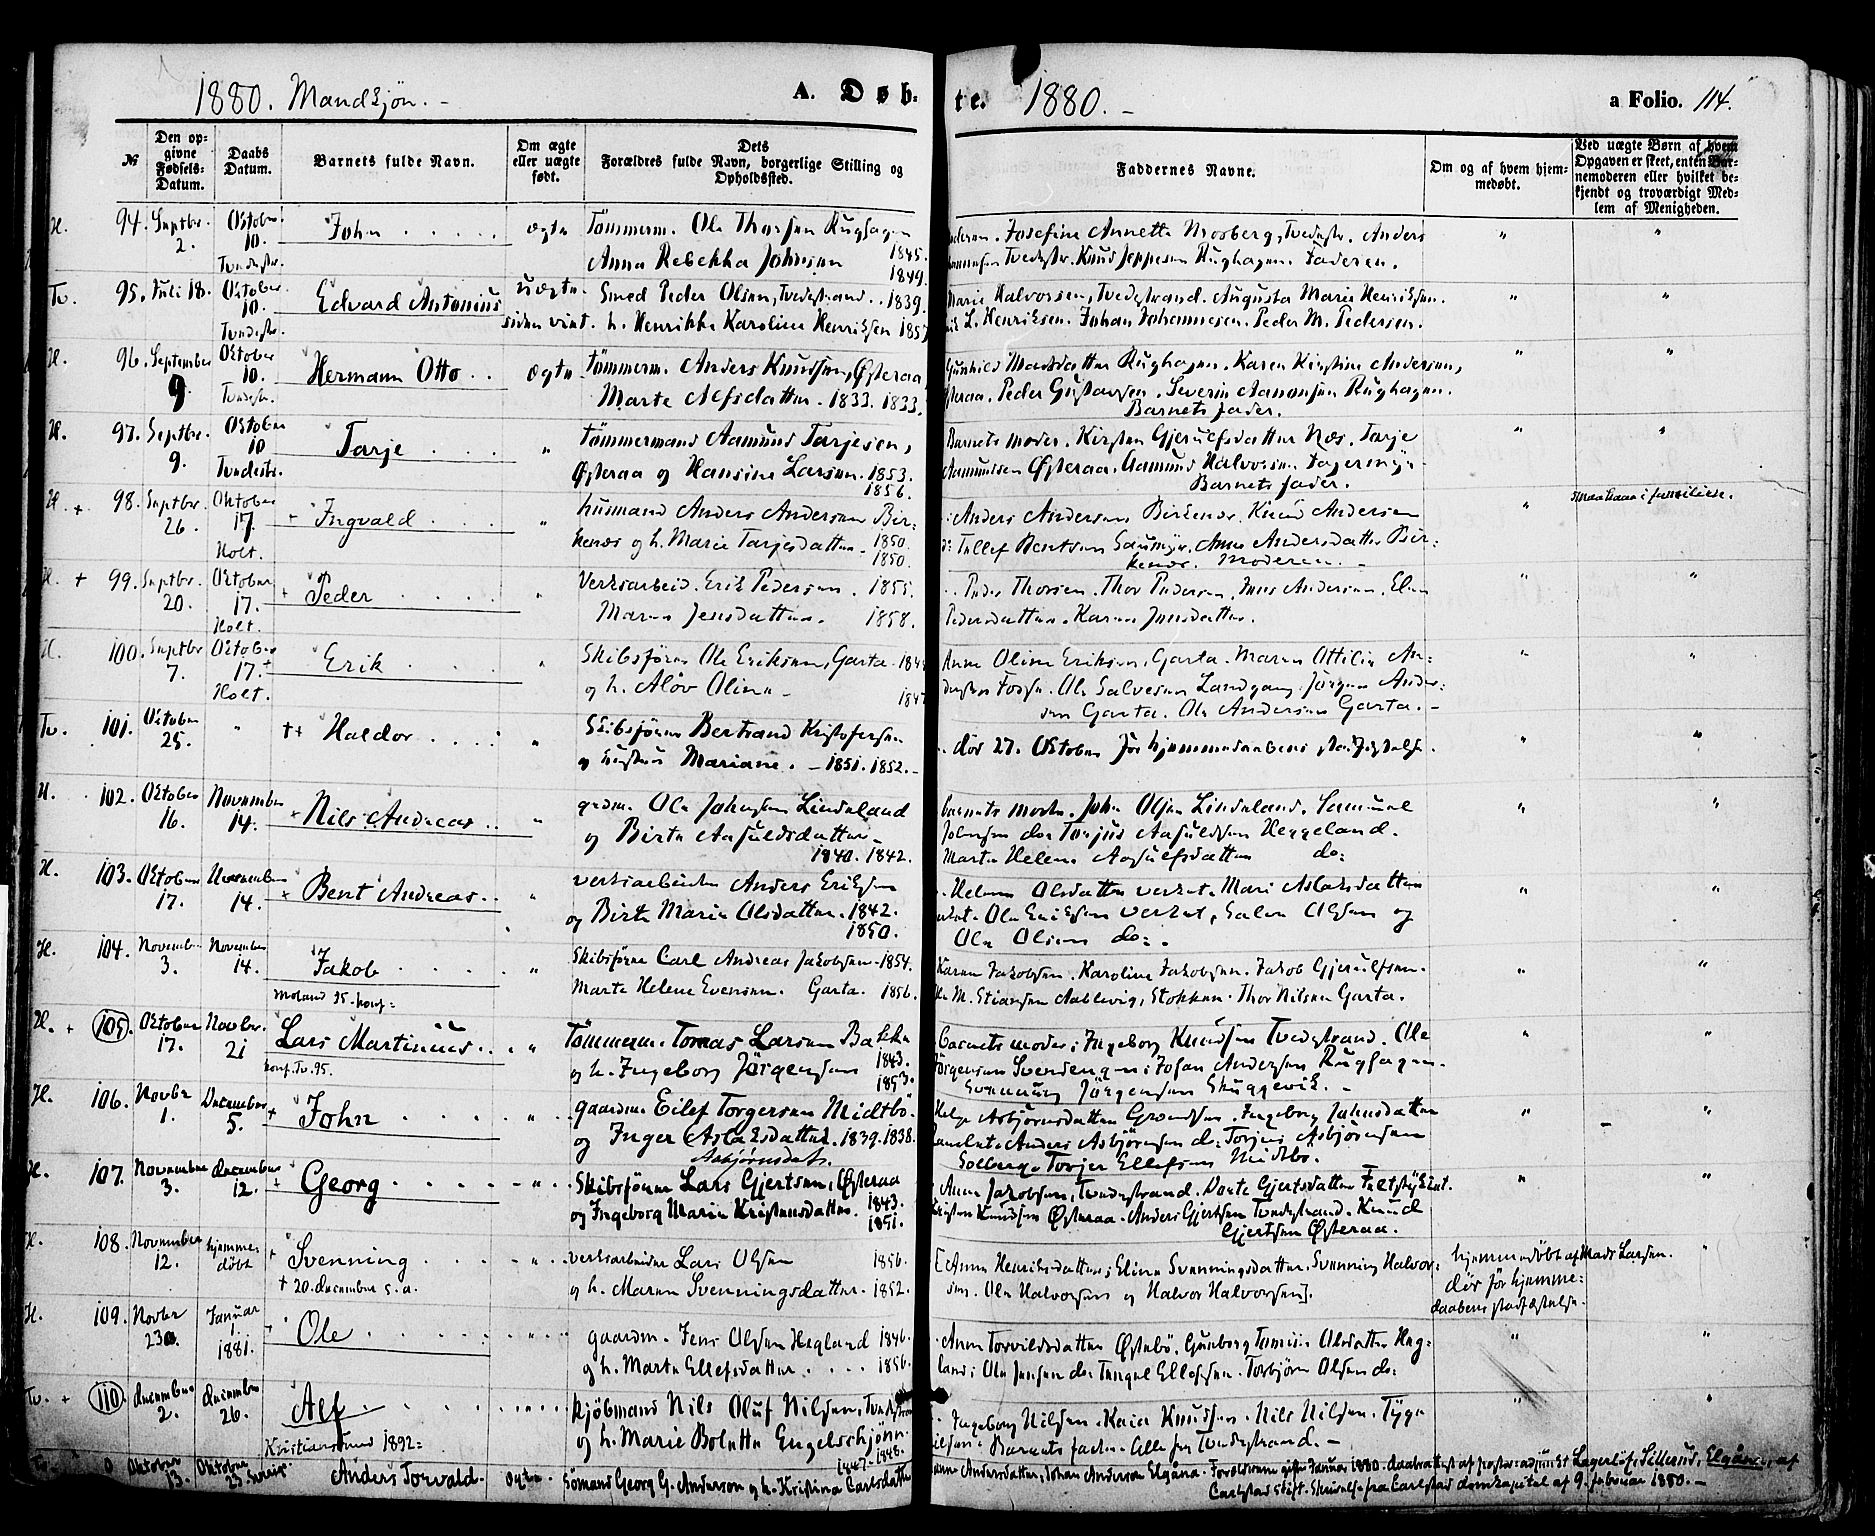 1880. Mandkjøn. - A. Døb-
te. 1880. - a Folio. 114.
№ Den opgivne Fødsels-Datum. Daabs Datum. Barnets fulde Navn. Om ægte eller uægte født. Dets Forældres fulde Navn, borgerlige Stilling og Opholdssted.
Faddernes Navne. Om og af hvem hjemmedøbt. Ved uægte Børn af hvem Opgaven er skeet, enten Barnemoderen eller hvilket bekjendt og troværdigt Medlem af Menigheden.
H. 94. Septbr. 2. Oktober 10. Tvedestr. John ægte Tømmerm. Ole Thorsen Rughagen 1845.
Anna Rebekka Johnsen 1849.
Josefine Annette Mosberg, Tvedestr. Anders
Tvedestr. Knud Jeppesen Rughagen. Faderen.
Tv. 95. Juli 18. Oktober 10. Tvedestr. Edvard Antonius uægte. siden viet. Smed Peder Olsen, Tvedestrand. 1839.
h. Henrikke Karoline Henriksen 1857
Marie Halvorsen, Tvedestrand. Augusta Marie Henriksen.
L. Henriksen. Johan Johannesen. Peder M. Pedersen.
H. 96. September 9. Oktober 10. Tvedestr. Hermann Otto ægte Tømmerm. Anders Knudsen, Østeraa,
Marte Alfsdatter. 1833. 1833.
Gunhild Madsdatter Rughagen. Karen Kirstine Andersen,
Østeraa. Peder Gustavsen. Severin Aanonsen Rughagen.
Barnets fader.
H. 97. Septbr. 9. Oktober 10 Tvedestr. Tarje " Tømmermand Aamund Tarjesen,
Østeraa og Hansine Larsen. 1853.
1856.
Barnets moder. Kirsten Gjerulfsdatter Næs. Tarje
Aamundsen Østeraa. Aamund Halvorsen Fagermyr
Barnets fader.
H. + 98. Septbr. 26. Oktober 17. Holt. Ingvald " husmand Anders Andersen Bir-
kenæs og h. Marie Tarjesdatter. 1850.
1850.
Anders Andersen Birkenæs. Knud Andersen
do: Tellef Bentsen Saumyr. Anne Andersdatter Bir-
kenæs. Moderen. -
H. + 99. Septbr. 20. Oktober 17. Holt. Peder " Verksarbeid. Erik Pedersen. 1855.
Maren Jensdatter. 1858.
Peder Thorsen. Thor Pedersen. Jens Andersen. Elen
Pedersdatter. Karen Jensdatter.
H. 100. Septbr 7. Oktober 17. Holt. Erik " Skibsfører Ole Eriksen, Garta.
og h. Aløv Oline -
Anne Oline Eriksen, Garta. Maren Ottilie An-
Ole Salvesen Landgang. Jørgen Ander-
sen Garta. Ole Andersen Garta. -
Tv. 101. Oktober 25. " ++ Haldor " Skibsfører Bertrand Kristofersen
og hustru Mariane. - 1851. 1852. -
død 27. Oktober før hjemmedaabens stadfæstelse.
H. 102. Oktober 16. November 14. + Nils Andreas " grdm. Ole Johnsen Lindeland
og Birte Aasuldsdatter -
1840. 1842.
Barnets moder. John Olsen Lindeland. Samuel
Johnsen do: Torjus Aasuldsen Heggeland.
Marte Helene Aasulfsdatter do:
H. 103. Oktober 17. November 14. + Bent Andreas " verksarbeider Anders Eriksen
og Birte Marie Olsdatter. 1842.
1850.
Helene Olsdatter verket. Mari Aslaksdatter
verket. Ole Eriksen verket, Salve Olsen og
Ole Olsen do:.
H. 104. November 3. November 14. Jakob " Skibsfører Carl Andreas Jakobsen. 1854.
Moland 95. konf: Marte Helene Evensen. Garta. 1856.
Karen Jakobsen. Karoline Jakobsen. Jakob Gjerulfsen.
M. Stiansen Aablevig, Stokken. Thor Nilsen Garta.
H. + 105. Oktober 17. Novbr. 21 Lars Martinius " Tømmerm. Tomas Larsen Bakke
konf. Tv. 95. og h. Ingeborg Jørgensen 1843.
1853.
Barnets moder; Ingeborg Knudsen Tvedestrand. Ole
Jørgensen Svendengen; Johan Andersen Rughagen.
Svennung Jørgensen Skuggevik. -
H. 106. Novbr 1. December 5. + John " gaardm. Eilef Torgersen Midtbö.
og Inger Aslaksdatter. 1839. 1838.
Asbjørnsdatr.
Helge Asbjørnsdatter Ingeborg Johnsdatter
Anders Asbjörnsen do: Torjus Asbjörnsen
Solberg. Torjer Ellefsen Midtbö.
H. 107. November 3. December 12. + Georg " Skibsförer Lars Gjertsen, Østeraa
og Ingeborg Marie Kristensdatter. 1843.
1851.
Anne Jakobsen, Tvedestrand. Dorte Gjertsdatter
Kristen Knudsen Østeraa. Anders Gjertsen Tvedestrand. Knud
Gjertsen Østeraa.
H. 108. November 12. hjemme-døbt + Svenning " verksarbeider Lars Olsen 1856.
+ 20. december s. a. og h. Maren Svenningsdatter. 1852.
[Anne Henriksdatter; Eline Svenningsdatter. Svenning Halvor-
sen. Ole Halvorsen og Halvor Halvorsen]. hjemmedöbt af Mads Larsen.
död för hjemme-
daabens stadfæstelse.
H. 109. Novbr 23. Januar 1. 1881. Ole " gaardm. Jens Olsen Hegland 1846.
og h. Marte Ellefsdatter. 1856.
Anne Torvildsdatter Østebö, Gunborg Tomine Olsdatter Heg-
land; Ole Jensen do: Tengel Ellefsen. Torbjörn Olsen do:
Tv. + 110. December 2. December 26. Alf " kjöbmand Nils Oluf Nilsen, Tvedestrand
Kristiansund 1892: og h. Marie Bolette Engelskjønn.
1847. 1848.
Ingeborg Nilsen. Kaia Knudsen. Nils Nilsen. Tyge
Barnets fader. Alle fra Tvedestrand. -
Tv. 0 Oktober 13. Oktober 23. Anders Torvald. ægte. Sömand Georg G. Anderson og h. Kristina Carlsdatter
Andersdatter, Johan Anderson Elgåna. Forældrene gifte Januar 1880. daabsattest af pastor adjunkt Lagerlöf, Sillerud, Elgåna, af
Carlstad Stift. Skrivelse fra Carlstad domkapitel af 9. februar 1880. -